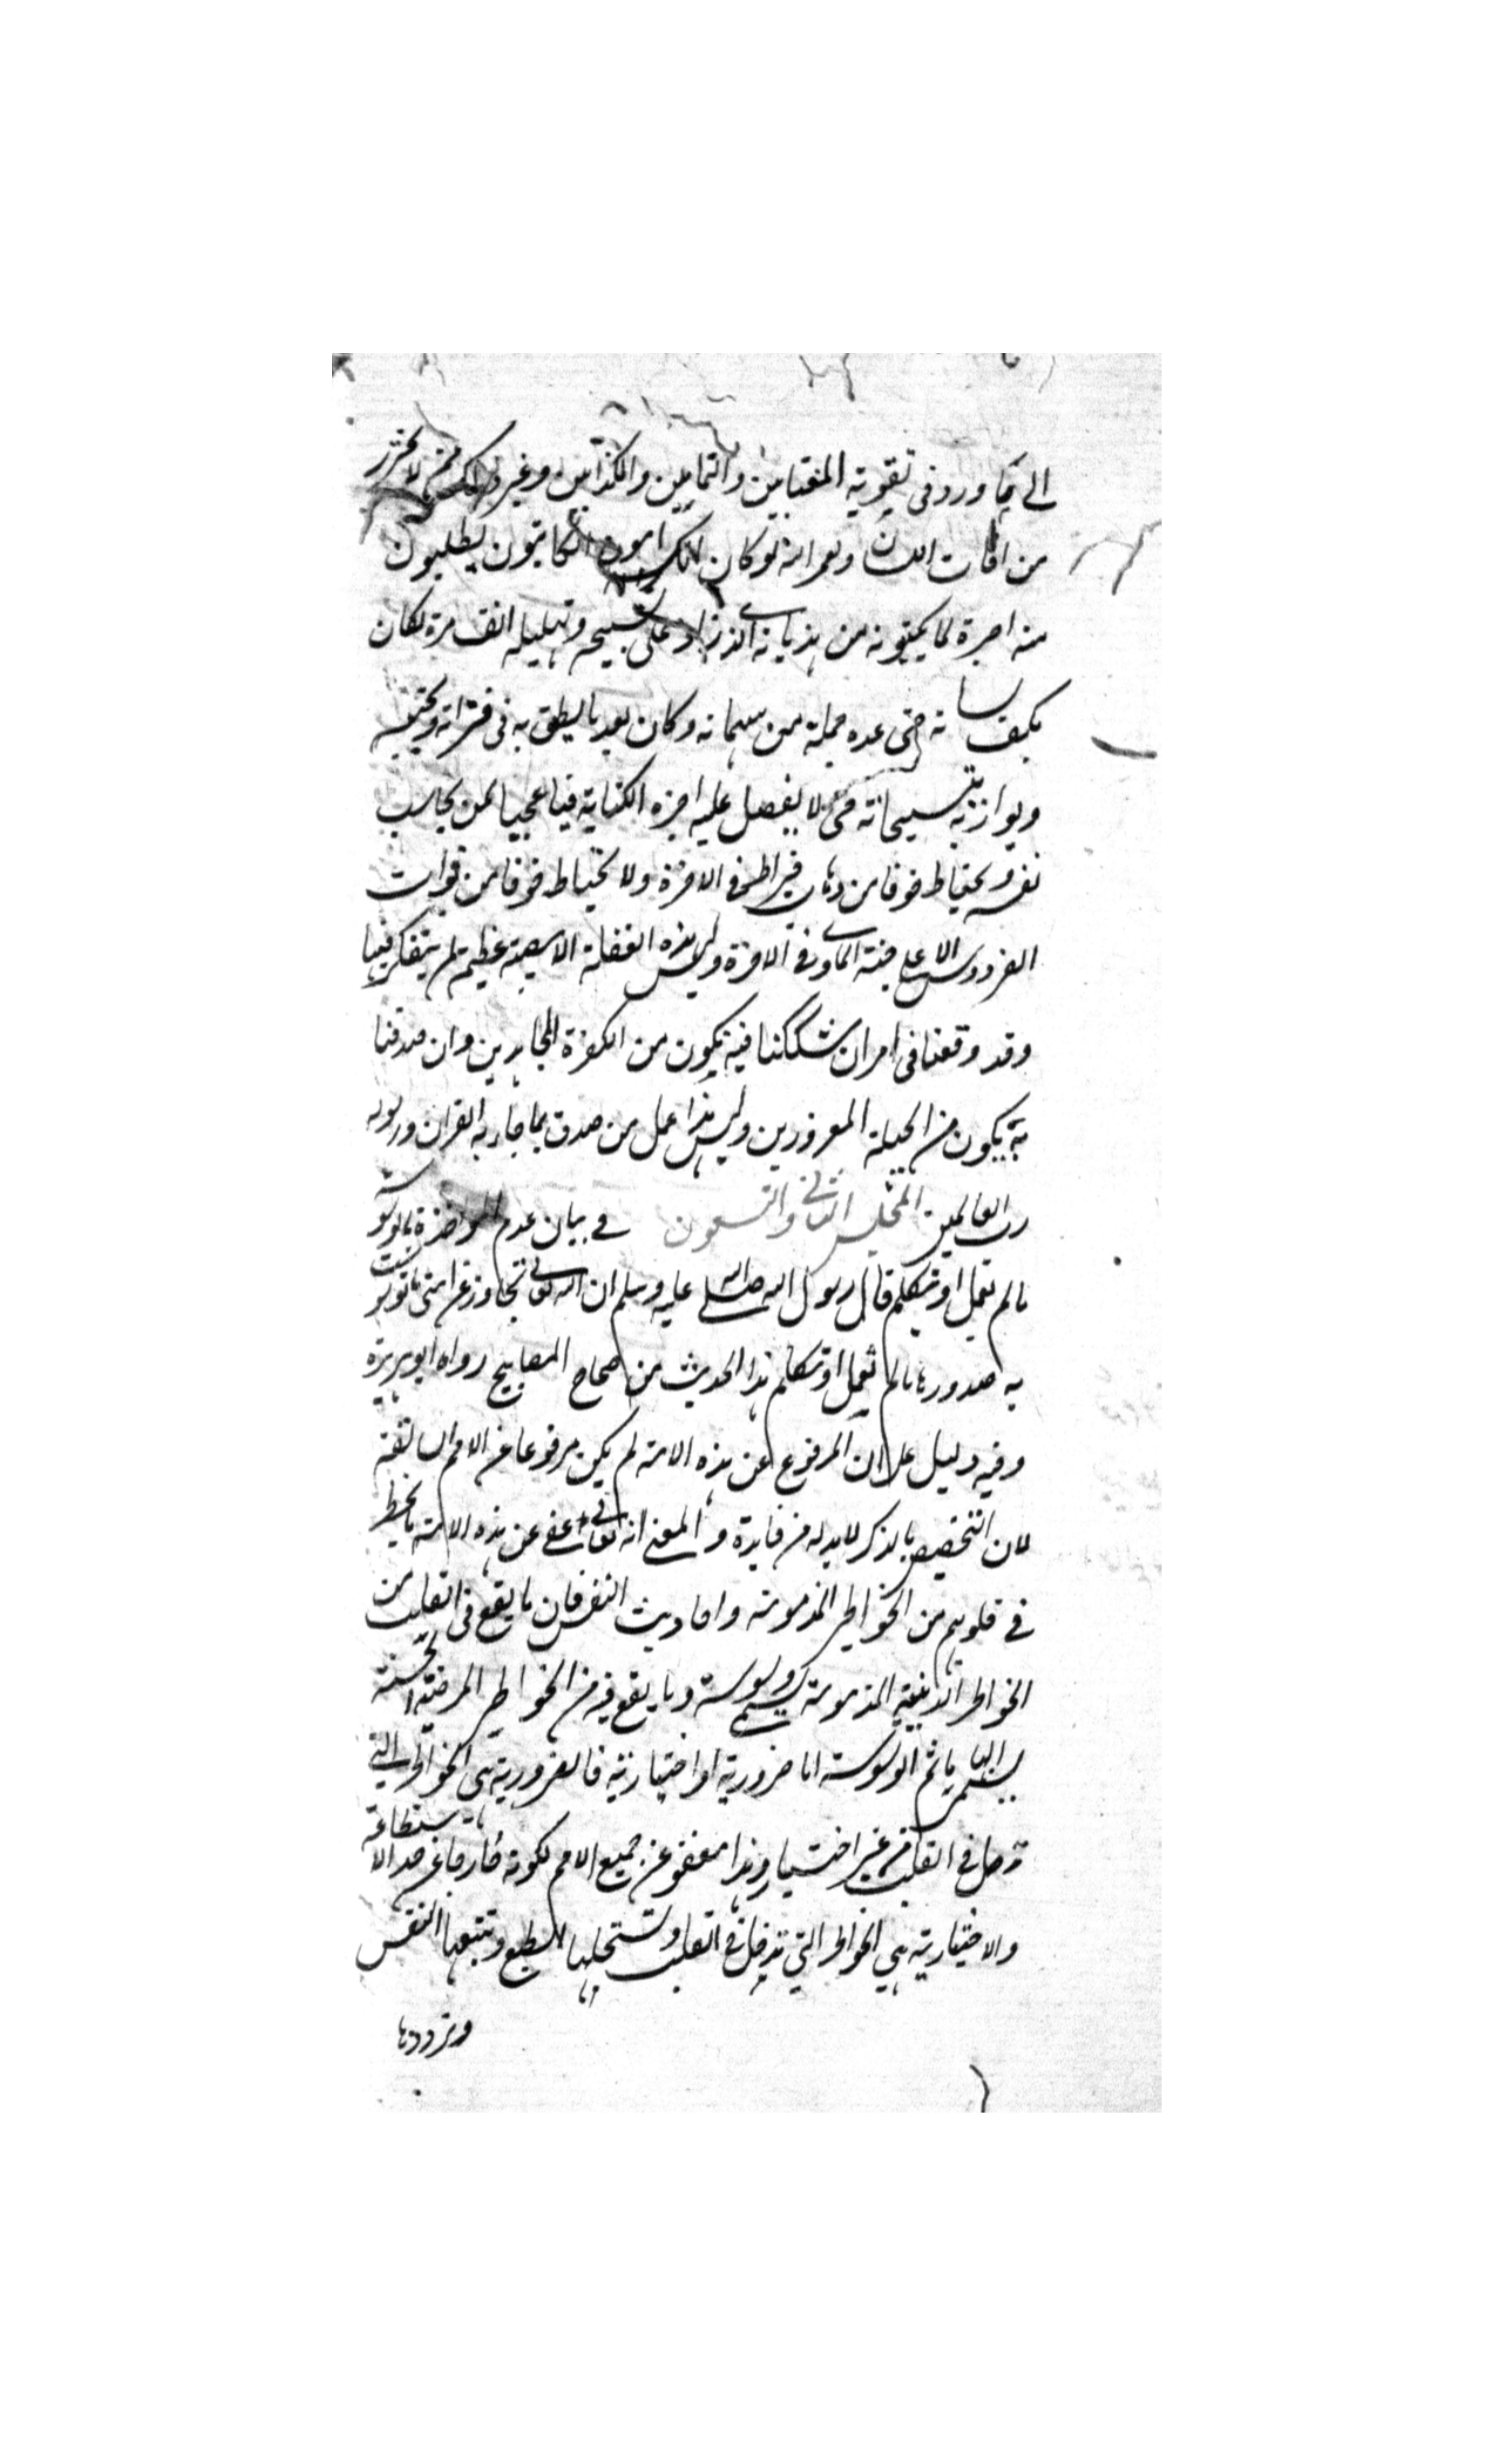 الى ما ورد في تقوية المغتابين والنمامين والكذابين وغير ذلك ممن لا يحترز
من افات اللسان ولعمر الله لو كان الكرامون الكاتبون يطلبون
منه اجرة لما يكتبونه من هذيانه الذى زاد على تسبيحه وتهليله الف مرة لكان
يكف لسانه حتى عده جملة من مهماته وكان يعد ما ينطق به فى فتراته ويحسبه
ويوازنه بتسبيحاته حتى لا يفضل عليه اجرة الكتابة فيا عجبا لمن يحاسب
نفسه ويحتاط خوفا من ذهاب قيراط في الاخرة ولا يحتاط خوفا من فوات
الفردوس الاعلى جنة الماوى في الاخرة وليس هذه الغفلة الا مصيبة عظيم لم يتفكر فيها
وقد وقعنا في امر ان شككنا فيه نكون من الكفرة الجاحدين وان صدقنا
به نكون من الجهلة المغرورين وليس هذا عمل من صدق بما جاء به القران ورسوله
رب العالمين المجلس الثانى والتسعون في بيان عدم المواخذة بالوسوسة
ما لم تعمل او تتكلم قال رسول الله صلى الله عليه وسلم ان الله تعالى تجاوز عن امتى ما توسوست
به صدورها ما لم تعمل او تتكلم هذا الحديث من صحاح المصابيح رواه ابو هريرة
وفيه دليل على ان المرفوع عن هذه الامة لم يكن مرفوعا عن الامم السالفة
لان التخصيص بالذكر لا بد له من فايدة والمعنى انه تعالى عفى عن هذه الامة ما يخطر
في قلوبهم من الخواطر المذمومة واحاديث النفس فان ما يقع فى القلب من
الخواطر الدنيئية المذمومة يسمى وسوسة وما يقع فيه من الخواطر المرضية الحسنة
يسمى الهاما ثم الوسوسة اما ضرورية او اختيارية فالضرورية هي الخواطر التي
تدخل في القلب من غير اختيار وهذا معفو عن جميع الامم لكونه خارجا عن حد الاستطاعة
والاختيارية هي الخواطر التي تدخل في القلب وتستجلبها الطبع وتتبعها النفس
وترددها